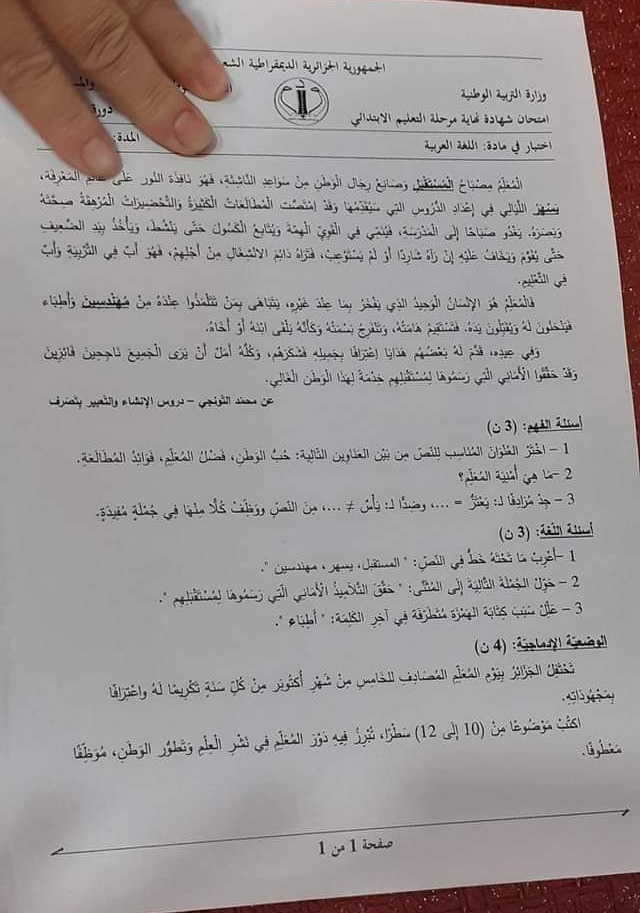 الجمهورية الجزائرية الديمقراطية
وزارة التربية الوطنية
امتحان شهادة نهاية مرحلة التعليم الابتدائي
دورة
اختبار في مادة: اللغة العربية
المدة:
المُعَلِّمُ مِصْبَاحُ المُسْتَقْبَلِ وَصَانِعُ رِجَالِ الْوَطَنِ مِنْ سَوَاعِدِ النَّاشِئَةِ، فَهُوَ نَافِذَةُ النُّورِ عَلَى عَالَمِ المَعْرِفَةِ،
يَسْهَرُ اللَّيَالِي فِي إِعْدَادِ الدُّرُوسِ التي سَيُقَدِّمُهَا وَقَدْ اِمْتَصَّتْ المُطَالَعَاتُ الْكَثِيرَةُ وَالتَّحْضِيرَاتُ الْمُرْهِقَةُ صِحَّتَهُ
وَبَصَرَهُ. يَغْدُو صَبَاحًا إِلَى الْمَدْرَسَةِ، فَيُنَمِّي فِي الْقَوِيِّ الْهِمَّةَ وَيُتَابِعُ الْكَسُولَ حَتَّى يَنْشَطَ، وَيَأْخُذُ بِيَدِ الضَّعِيفِ
حَتَّى يَقُومَ وَيَخَافُ عَلَيْهِ إِنْ رَآهُ شَارِدًا أَوْ لَمْ يَسْتَوْعِبْ، فَتَرَاهُ دَائِمَ الانْشِغَالِ مِنْ أَجْلِهِمْ، فَهُوَ أَبٌ فِي التَّرْبِيَةِ وَأَبٌ
فِي التَّعْلِيمِ.
فَالْمُعَلِّمُ هُوَ الإِنْسَانُ الْوَحِيدُ الذِي يَفْخَرُ بِمَا عِنْدَ غَيْرِهِ، يَتَبَاهَى بِمَنْ تَتَلْمَذُوا عِنْدَهُ مِنْ مُهَنْدِسِينَ وَأَطِبَّاء
فَيَنْحَنُونَ لَهُ وَيُقَبِّلُونَ يَدَهُ. فَتَسْتَقِيمُ هَامَتُهُ، وَتَنْفَرِجُ بَسْمَتُهُ وَكَأَنَّهُ يَلْقَى ابْنَهُ أَوْ أَخَاهُ.
وَفِي عِيدِهِ، قَدَّمَ لَهُ بَعْضُهُمْ هَدَايَا اِعْتِرَافًا بِجَمِيلِهِ فَشَكَرَهُمْ، وَكُلُّهُ أَمَلٌ أَنْ يَرَى الْجَمِيعَ نَاجِحِينَ فَائِزِينَ
وَقَدْ حَقَّقُوا الْأَمَانِي الَّتِي رَسَمُوهَا لِمُسْتَقْبَلِهِم خِدْمَةً لِهَذَا الْوَطَنِ الْغَالِي.
عن محمد التونجي – دروس الإنشاء والتعبير بتصرف
أسئلة الفهم: (3 ن)
1 – اخْتَرْ العُنْوَانَ المُنَاسِب لِلنَّصّ مِن بَيْن العَنَاوِين التَّالِية: حُبُّ الوَطَنِ، فَضْلُ المُعَلِّمِ، فَوَائِدُ المُطَالَعَةِ.
2 –مَا هِيَ أُمْنِيَة المُعَلِّمِ؟
3 – جِدْ مُرَادِفًا لـ: يَعْتَزُّ = ...، وضِدًّا لـ: يَأْسٌ ≠ ...، مِنَ النّصّ ووَظِّفْ كُلًّا مِنْهَا فِي جُمْلَةٍ مُفِيدَةٍ.
أسئلة اللغة: (3 ن)
1 –أَعْرِبْ مَا تَحْتَهُ خَطٌّ فِي النّصّ: " المستقبل، يسهر، مهندسين ".
2 – حَوِّلْ الجُمْلَةَ التَّالِيَةَ إِلَى المُثَنَّى: " حَقَّقَ التَّلَامِيذُ الْأَمَانِي الَّتِي رَسَمُوهَا لِمُسْتَقْبَلِهِم ".
3 – عَلِّلْ سَبَبَ كِتَابَة الهَمْزَة مُتَطَرِّفَة فِي آخِرِ الكَلِمَة: " أَطِبَّاء ".
الوضعيّة الإدماجيّة: (4 ن)
تَحْتَفِلُ الجَزَائِرُ بِيَوْمِ المُعَلِّمِ المُصَادِفِ لِلخَامِسِ مِنْ شَهْرِ أُكْتُوبَر مِنْ كُلِّ سَنَةٍ تَكْرِيمًا لَهُ واعْتِرَافًا
بِمَجْهُودَاتِهِ.
اكْتُبْ مَوْضُوعًا مِنْ (10 إِلَى 12) سَطْرًا، تُبْرِزُ فِيهِ دَوْرَ المُعَلِّم فِي نَشْرِ العِلْمِ وَتَطَوُّرِ الوَطَنِ، مُوَظِّفًا
مَعْطُوفًا.
صفحة 1 من 1